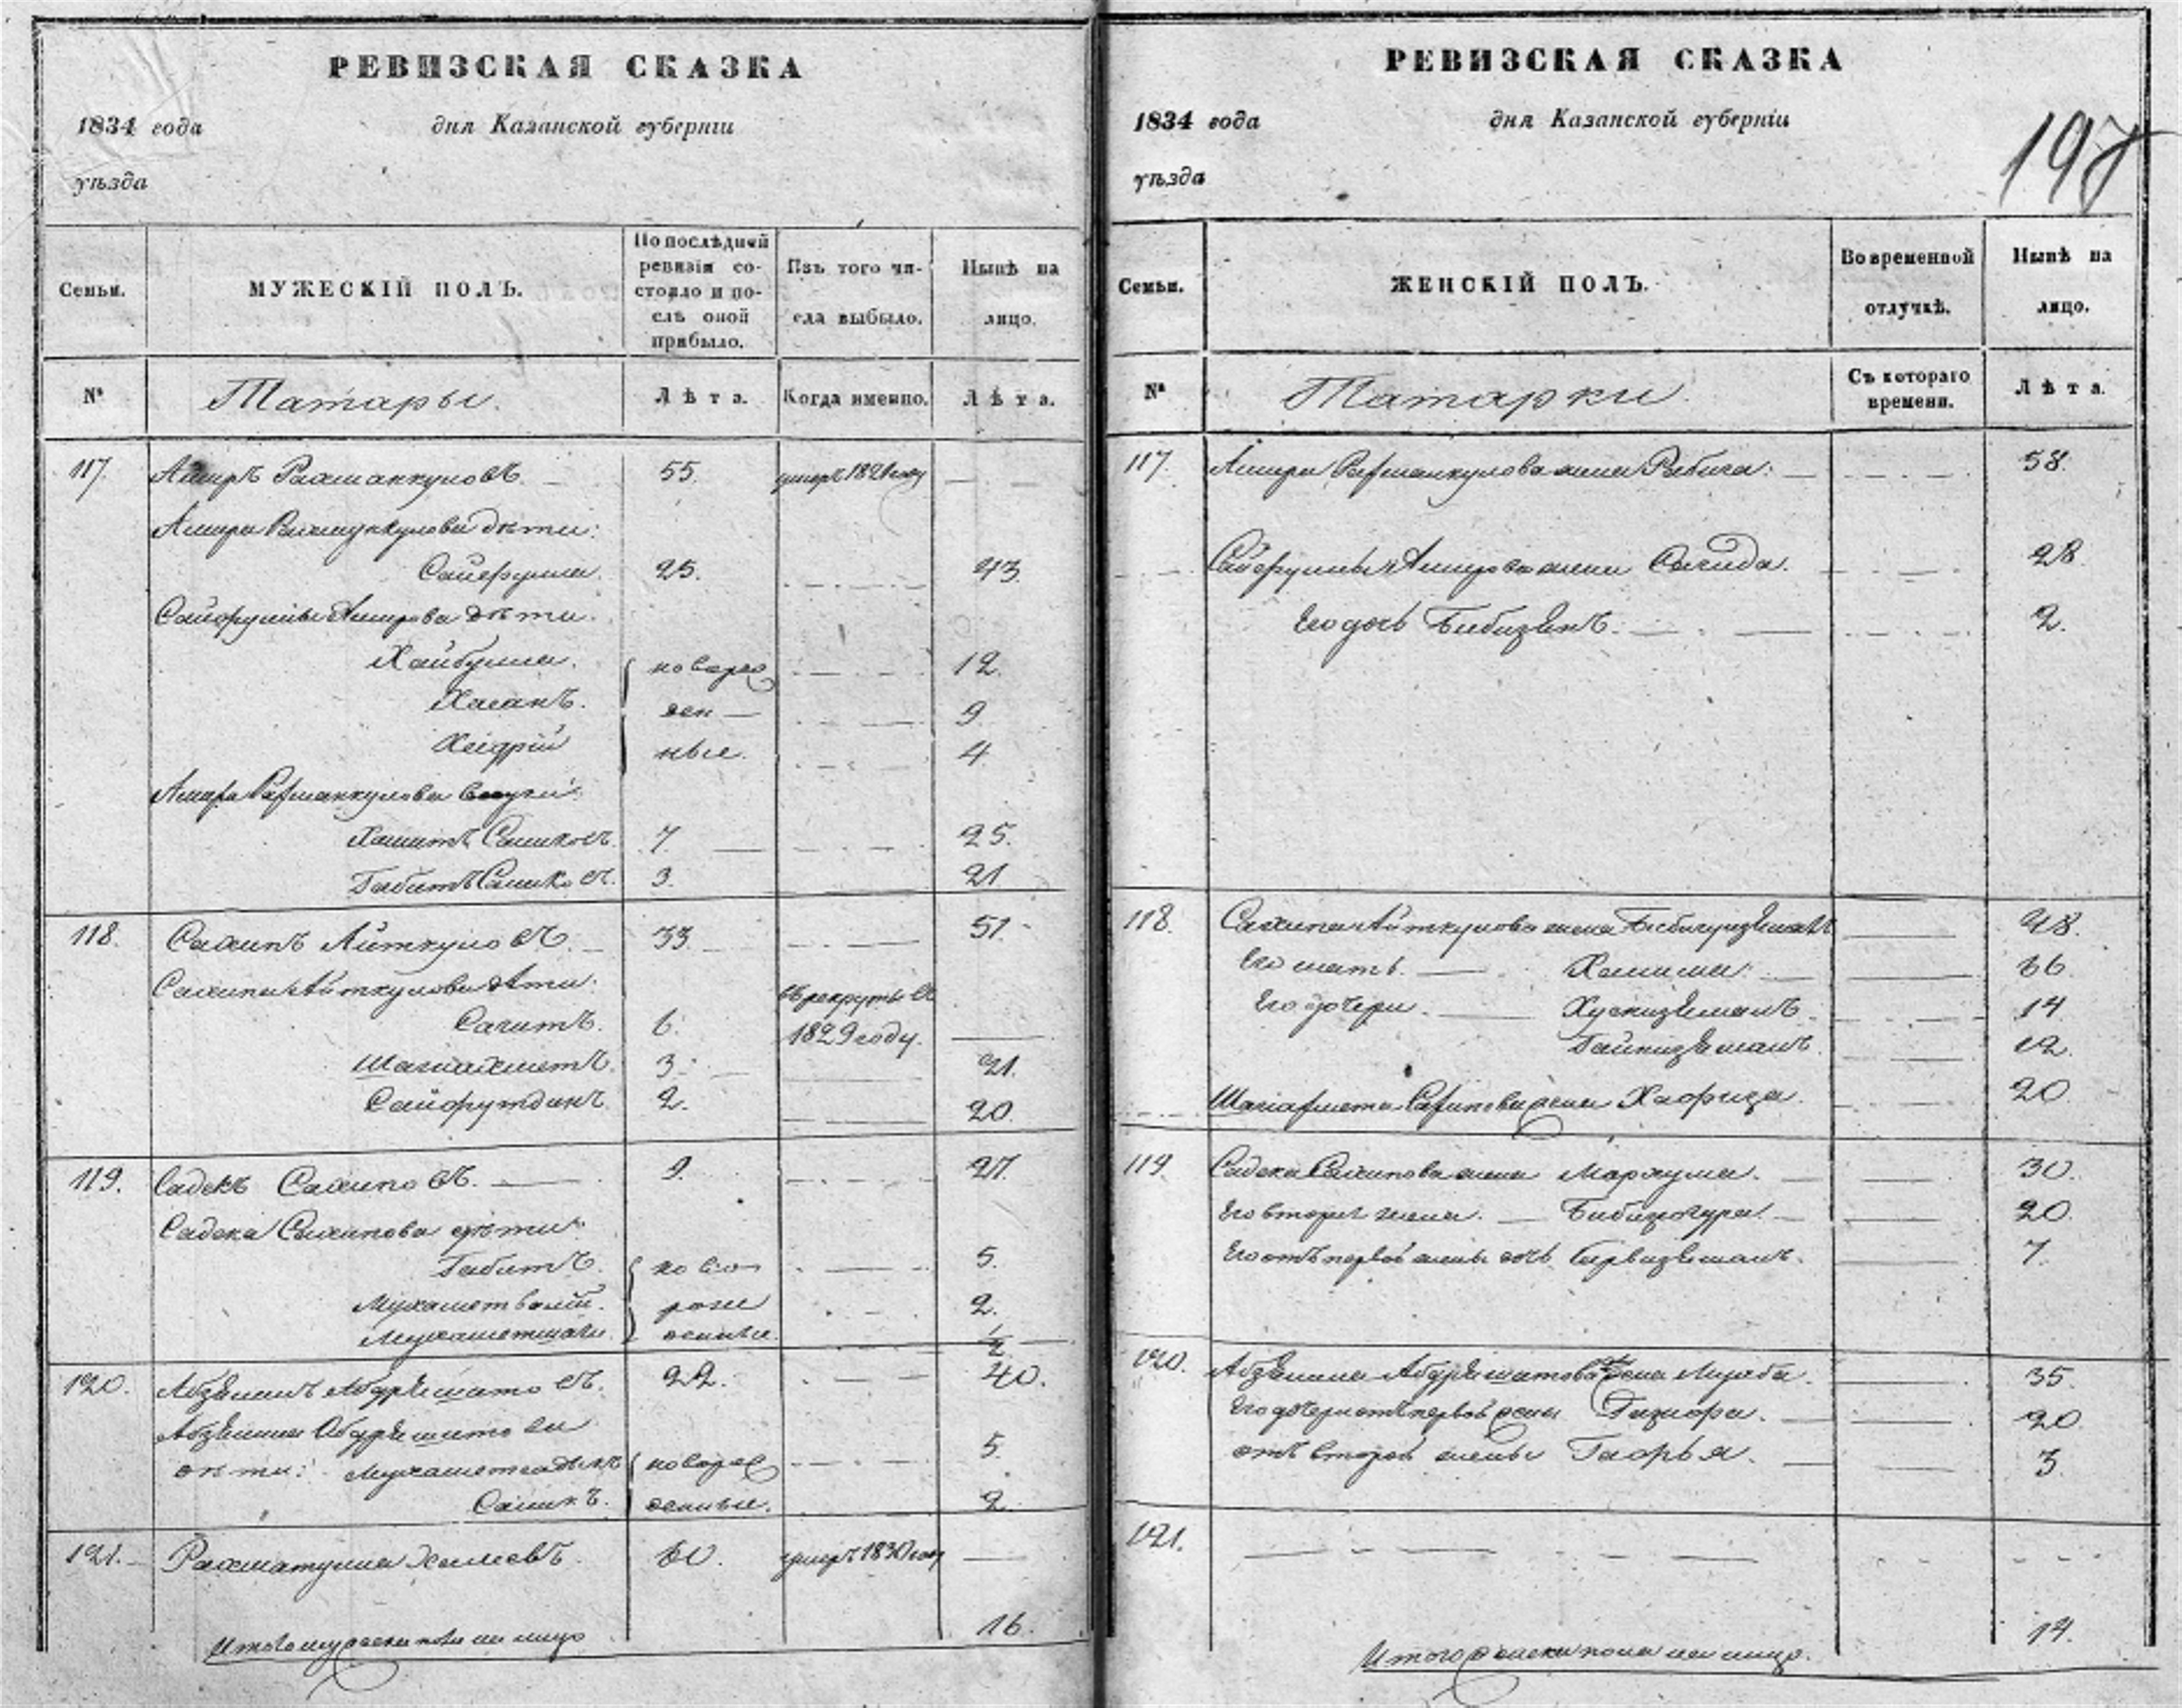 РЕВИЗСКАЯ СКАЗКА
1834 года дня Казанской губерніи
уѣзда
Семьи. МУЖЕСКІЙ ПОЛЪ. По послѣдней ревизіи состояло и послѣ оной прибыло. Изъ того числа выбыло. Нынѣ на лицо.
№ Татары. Лѣта. Когда именно. Лѣта.
117. Амиръ Рахманкуловъ 55. умеръ 1821 году
Амира Рахманкулова дѣти:
Сайфулла. 25. 43
Сайфуллы Амирова дѣти.
Хайбулла. новорож 12.
Хасанъ. ден 9
ные. 4
Амира Рахманкулова внуки:
Хамитъ Саликовъ. 7 25.
Габитъ Саликовъ. 3. 21
118. Сахипъ Айткуловъ. 33 51.
Сахипа Айткулова дѣти. въ рекруты въ
Сагитъ. 6. 1829 году.
Шагиахметъ. 3. 21.
Сайфутдинъ 2. 20.
119. Садекъ Сахиповъ. 9. 27.
Садека Сахипова дѣти:
Габитъ. ново 5.
Мухаметвалій. рож 2.
Мухаметшагы. денные. 1/2
120. 22. 40.
дѣти: новорож 5.
Саликъ. денные. 2
121. Рахматулла Халеевъ. 60. умеръ 1830 году
Итого мужеска пола на лицо 16.
РЕВИЗСКАЯ СКАЗКА
1834 года дня Казанской губерніи
уѣзда
197
Семьи. ЖЕНСКІЙ ПОЛЪ. Во временной отлучкѣ. Нынѣ на лицо.
№ Татарки. Съ котораго времени. Лѣта.
117. Амира Рахманкулова жена Рабига: 58.
Сайфуллы Амирова жена Сагида. 28.
Его дочь Бибизянъ. 2.
118. Сахипа Айткулова жена 48.
Его мать. Халима. 66.
Его дочери. Хуснизямалъ. 14
Гайнизямалъ. 12.
Шагіахмета Сахипова жена Хафиза. 20
119. Садека Сахипова жена Мархума. 30.
Его вторая жена. 20.
Его отъ первой жены дочь 7.
120. жена 35.
Его дочери отъ первой жены 20
отъ второй жены 3.
121.
Итого женска пола на лицо. 14.